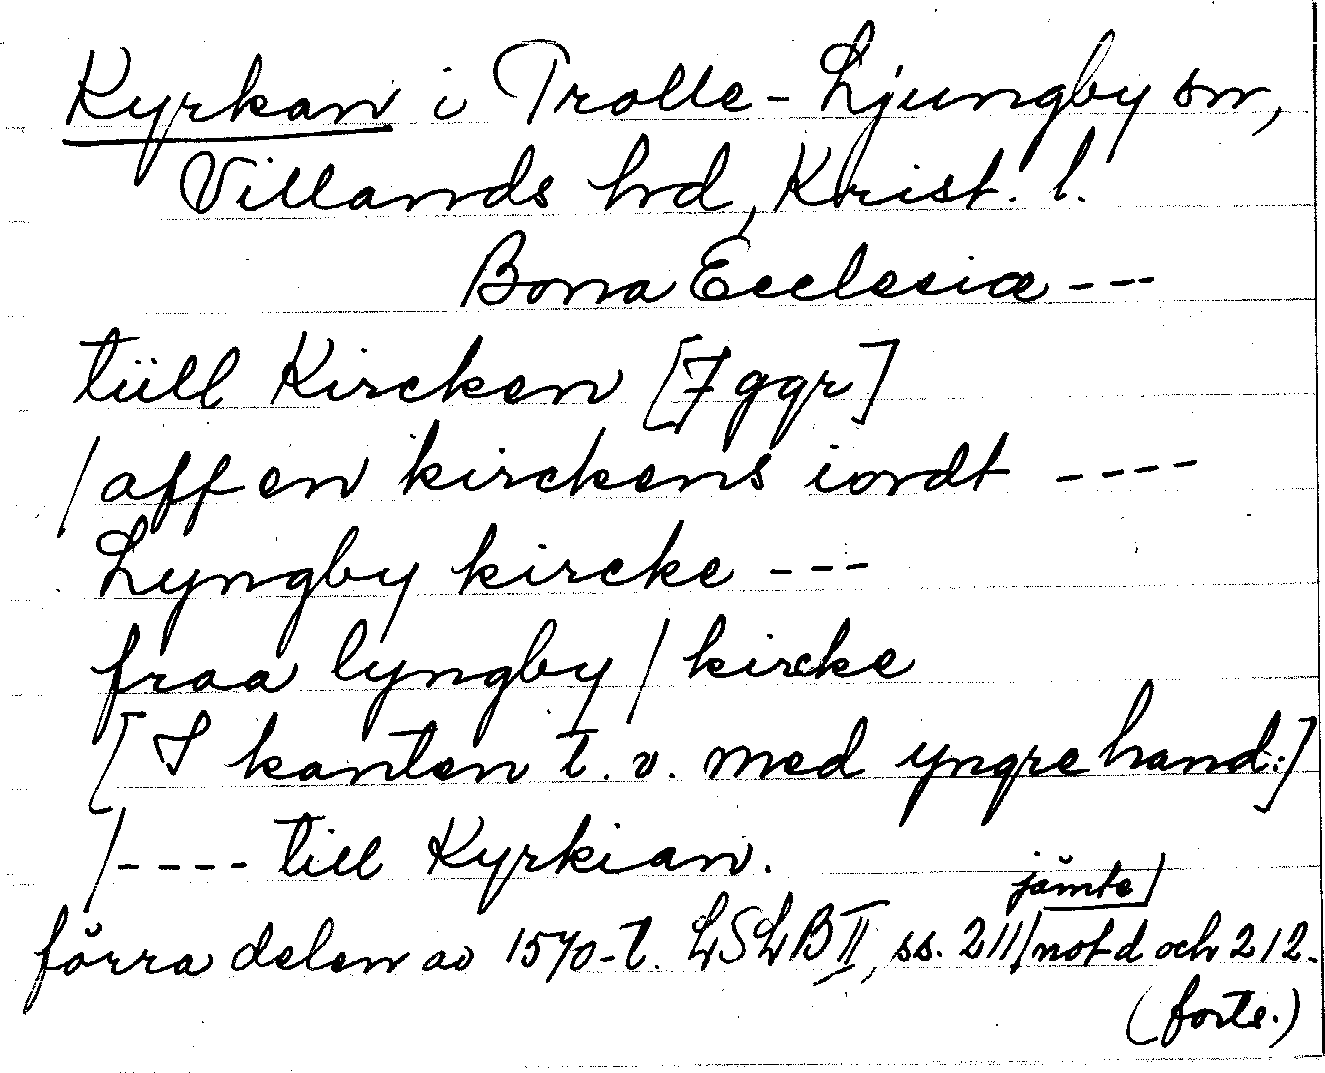 Kyrkan i Trolle-Ljungby sn,
Villands hd, Krist. l.
Bona Ecclesiæ ---
tüll Kircken [7 ggr]
/ aff en kirckens iordt ----
Lyngby kircke ---
fraa lyngby / kircke
[I kanten t. v. med yngre hand:]
/---- till Kyrkian.
jämte
förra delen av 1570-t. LSLB II, ss. 211/not d och 212.
(forts.)